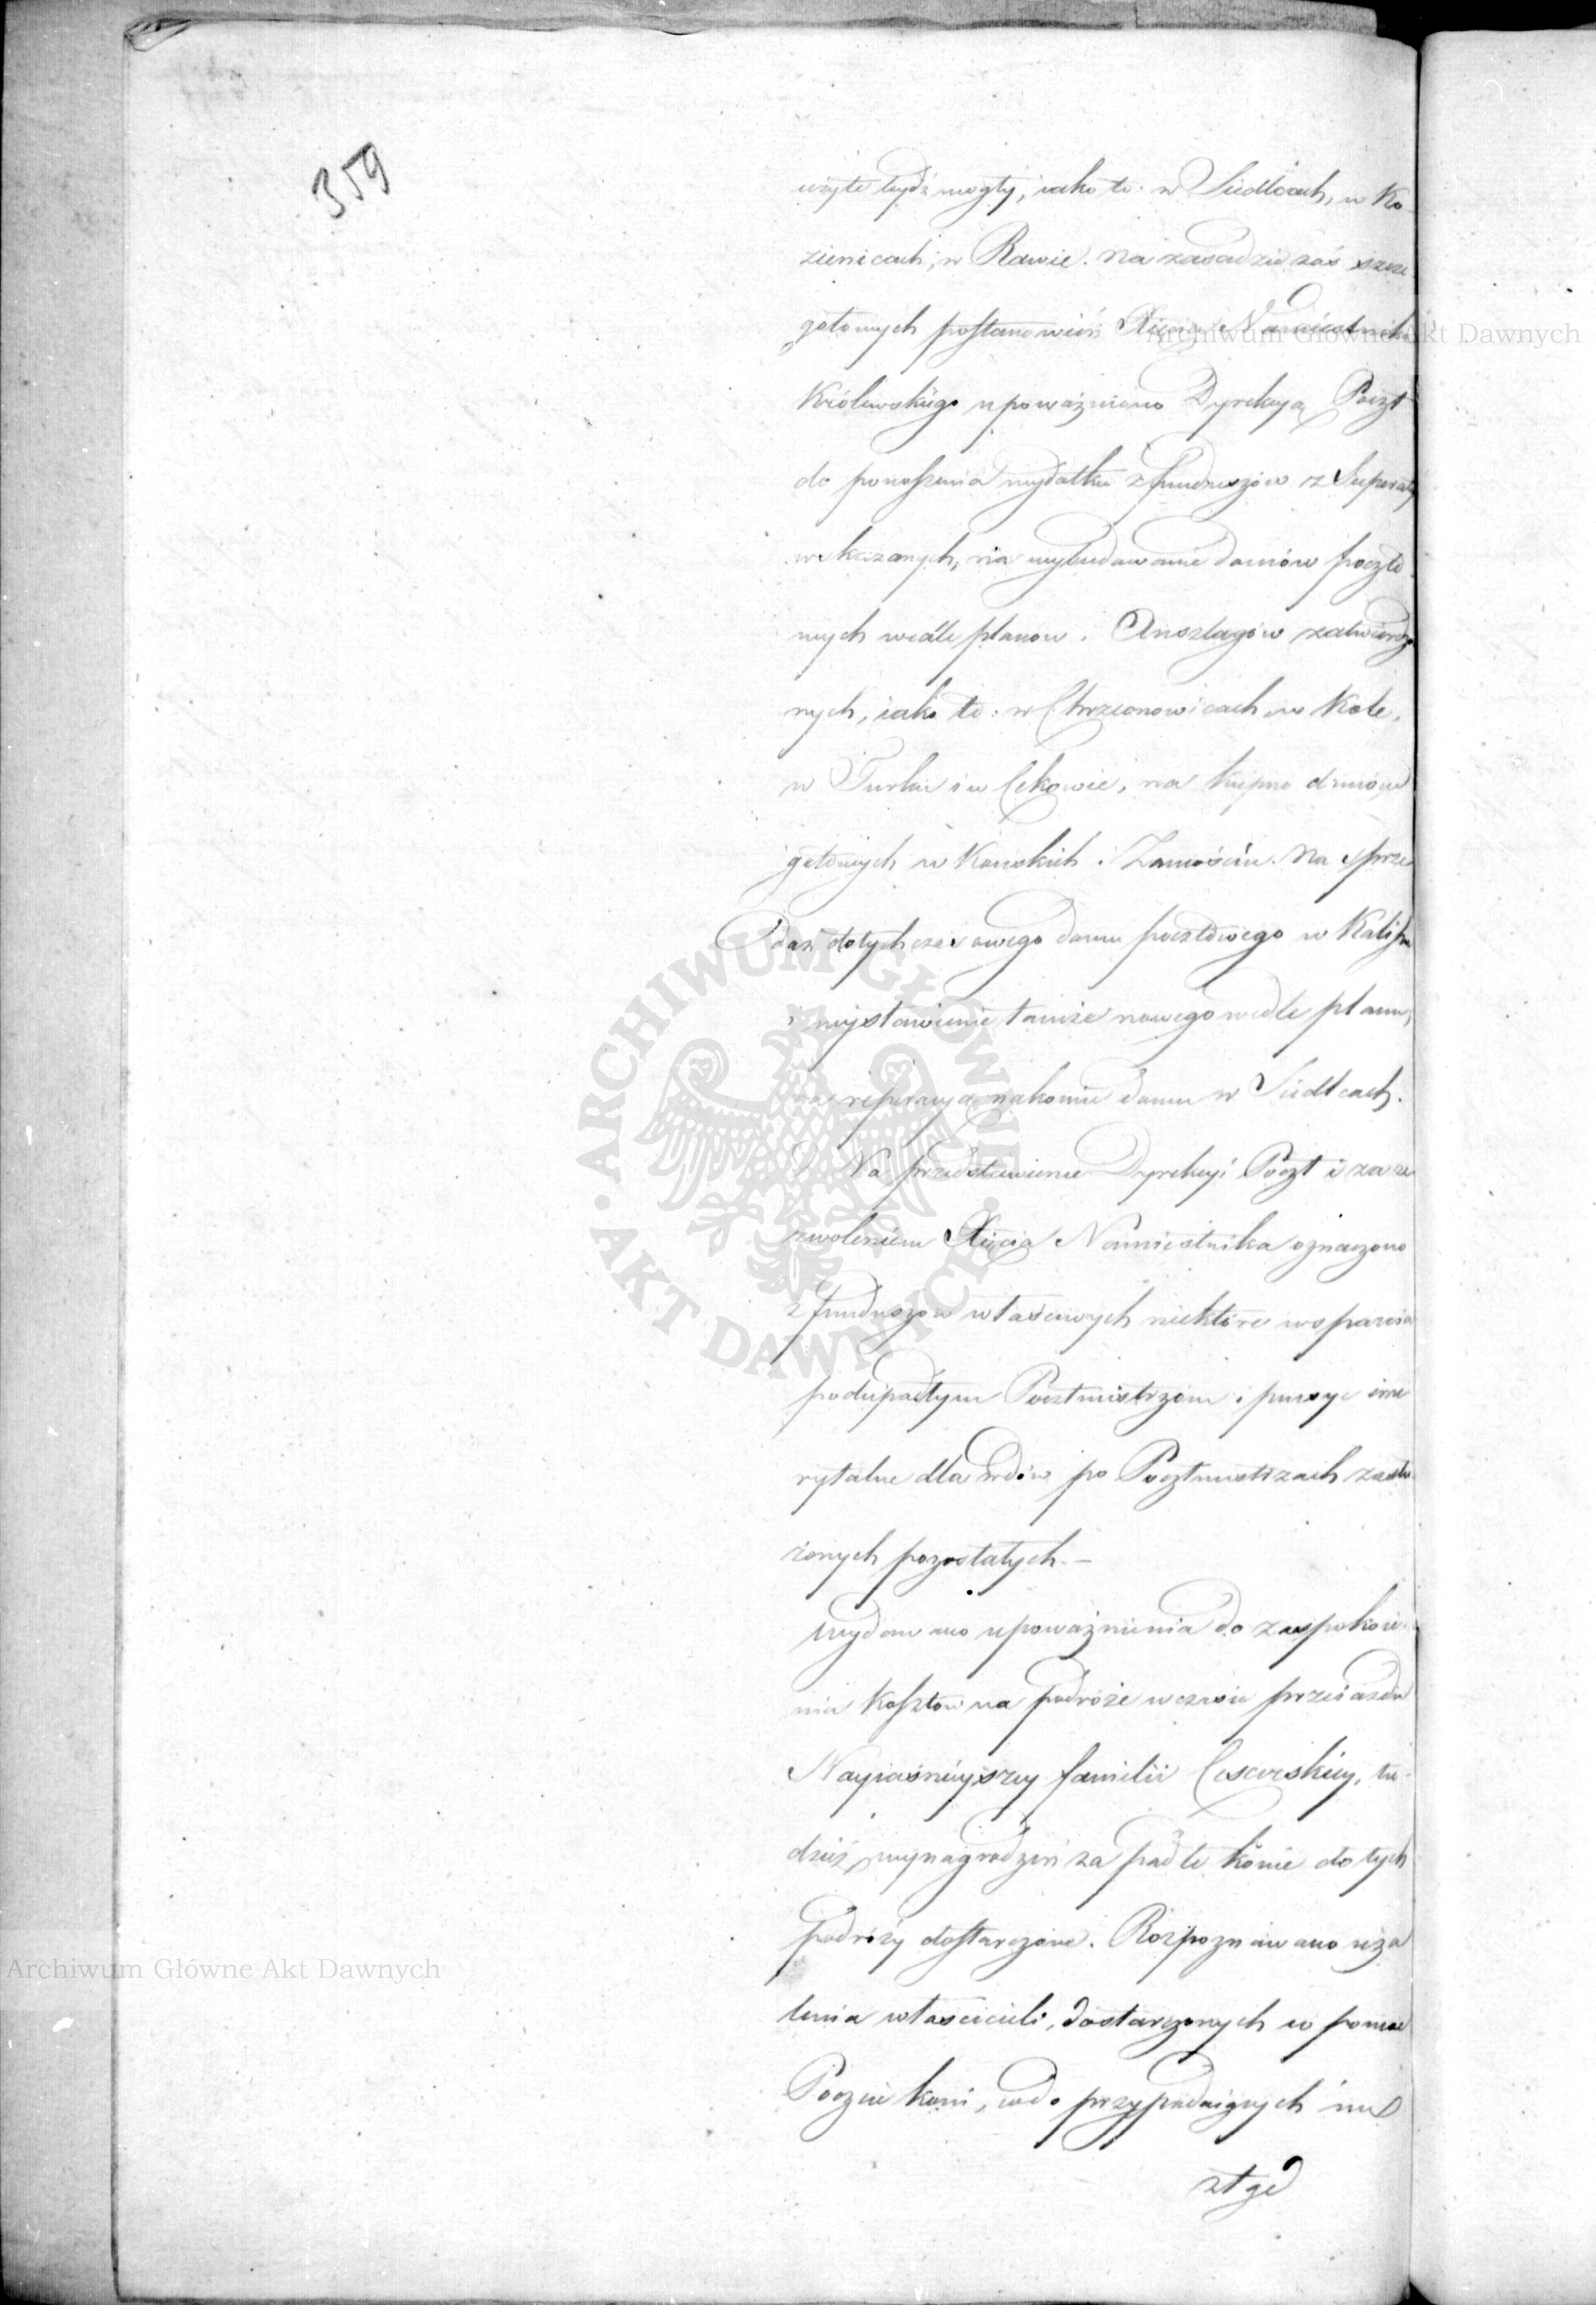 359
użyte bydź mogły, iako to: w Siedlcach, w Ko-
zienicach, w Rawie. Na zasadzie zaś szcze
gółowych postanowień Xięcia Namiestnika
Królewskiego upoważniono Dyrekcyą Poczt
do ponoszenia wydatku z funduszów z Superaty
wskazanych, na wybudowanie domów poczto
wych wedle planow i Anszlagów zatwierdzo
nych, iako to: w Chrzconowicach, w Kole,
w Turku i w Cekowie, na kupno domów
gotowych w Konskich i Zamościu. Na sprze
daż dotychczasowego domu pocztowego w Kaliszu
i wystawienie tamże nowego wedle planu,
na reperacyą nakoniec domu w Siedlcach.
Na przedstawienie Dyrekcyi Poczt i za ze
zwoleniem Xięcia Namiestnika oznaczono
z funduszów właściwych niektóre wsparcia
podupadłym Pocztmistrzom i pensye eme
rytalne dla wdów po Pocztmistrzach zasłu
żonych pozostałych. —
Wydawano upoważnienia do zaspokoie-
nia kosztów na podróże w czasie przeiazdu
Nayiaśnieyszey familii Cesarskiey, tu-
dzież wynagrodzeń za padłe konie do tych
podróży dostarczone. Rozpoznawano uża
lenia właścicieli, dostarczonych w pomoc
Poczcie koni, co do przypadaiących im
ztąd
Archiwum Główne Akt Dawnych
Archiwum Główne Akt Dawnych
ARCHIWUM GŁÓWNE · AKT DAWNYCH ·